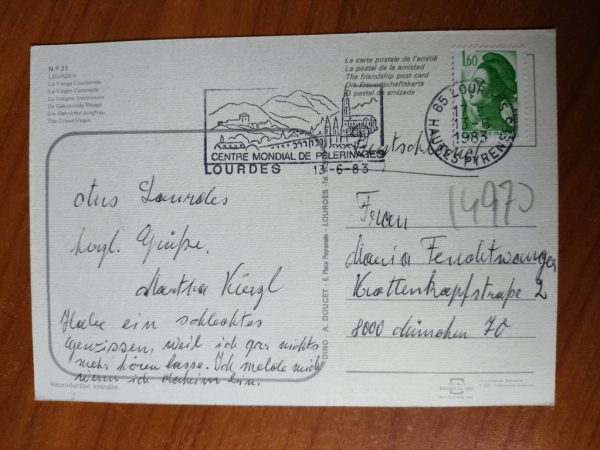 N.º 21
LOURDES
La Vierge Couronnée
The Crown Virgin
La carte postale de l'amitié
La postal de la amistad
The friendship post card
Die Freundschaftskarte
O postal de amizade
1,60
65 LOURDES
1983
HAUTES PYRENEES
CENTRE MONDIAL DE PELERINAGES
LOURDES 13-6-83
Deutschland
14970
Aus Lourdes
herzl. Grüße.
Martha
Habe ein schlechtes
Gewissen, weil ich gar nichts
mehr hören lasse. Ich melde mich
wenn ich daheim bin.
Frau
Maria Feuchtwanger
Krottenkopfstraße 2
8000 München 70
DINO - A. DOUCET - 6, Place Peyramale - LOURDES
Reproduction interdite